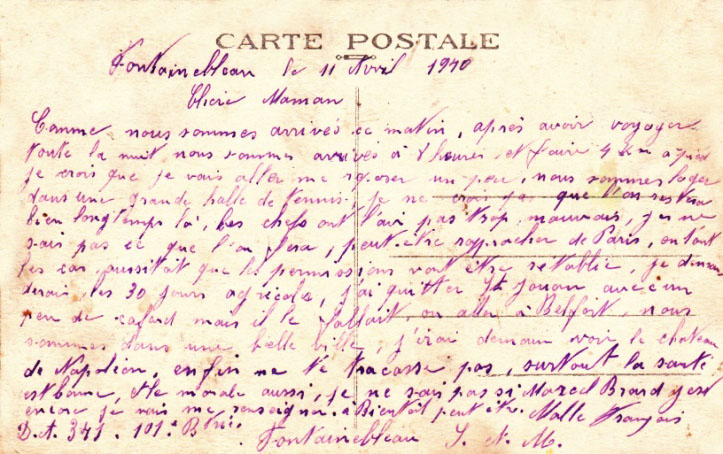 CARTE POSTALE
Fontainebleau le 11 Avril 1940
Chère Maman
Comme nous sommes arrivés ce matin, après avoir voyager
toute la nuit nous sommes arrivés à 8 heures et faire 4 km a pied
je crois que je vais aller me reposer un peu, nous sommes loger
dans une grande halle de tennis, je ne crois pas que l'on restera
bien longtemps là, les chefs ont l'air pas trop mauvais, je ne
sais pas ce que l'on fera, peut-être rapprocher de Paris, en tout
les cas aussitôt que les permissions vont être rétablie, je deman
derais les 30 jours agricoles, j'ai quitter St avec un
peu de cafard mais il le fallait, on alla à Belfort, nous
sommes dans une belle ville, j'irai demain voir le chateau
de Napoléon, enfin ne te tracasse pas, surtout la santé
est bonne, et le morale aussi, je ne sais pas si Marcel Brard y est
encore je vais me renseigner. à Bientôt peut être. François
D.A. 341. 101e Btrie. Fontainebleau S. et M.